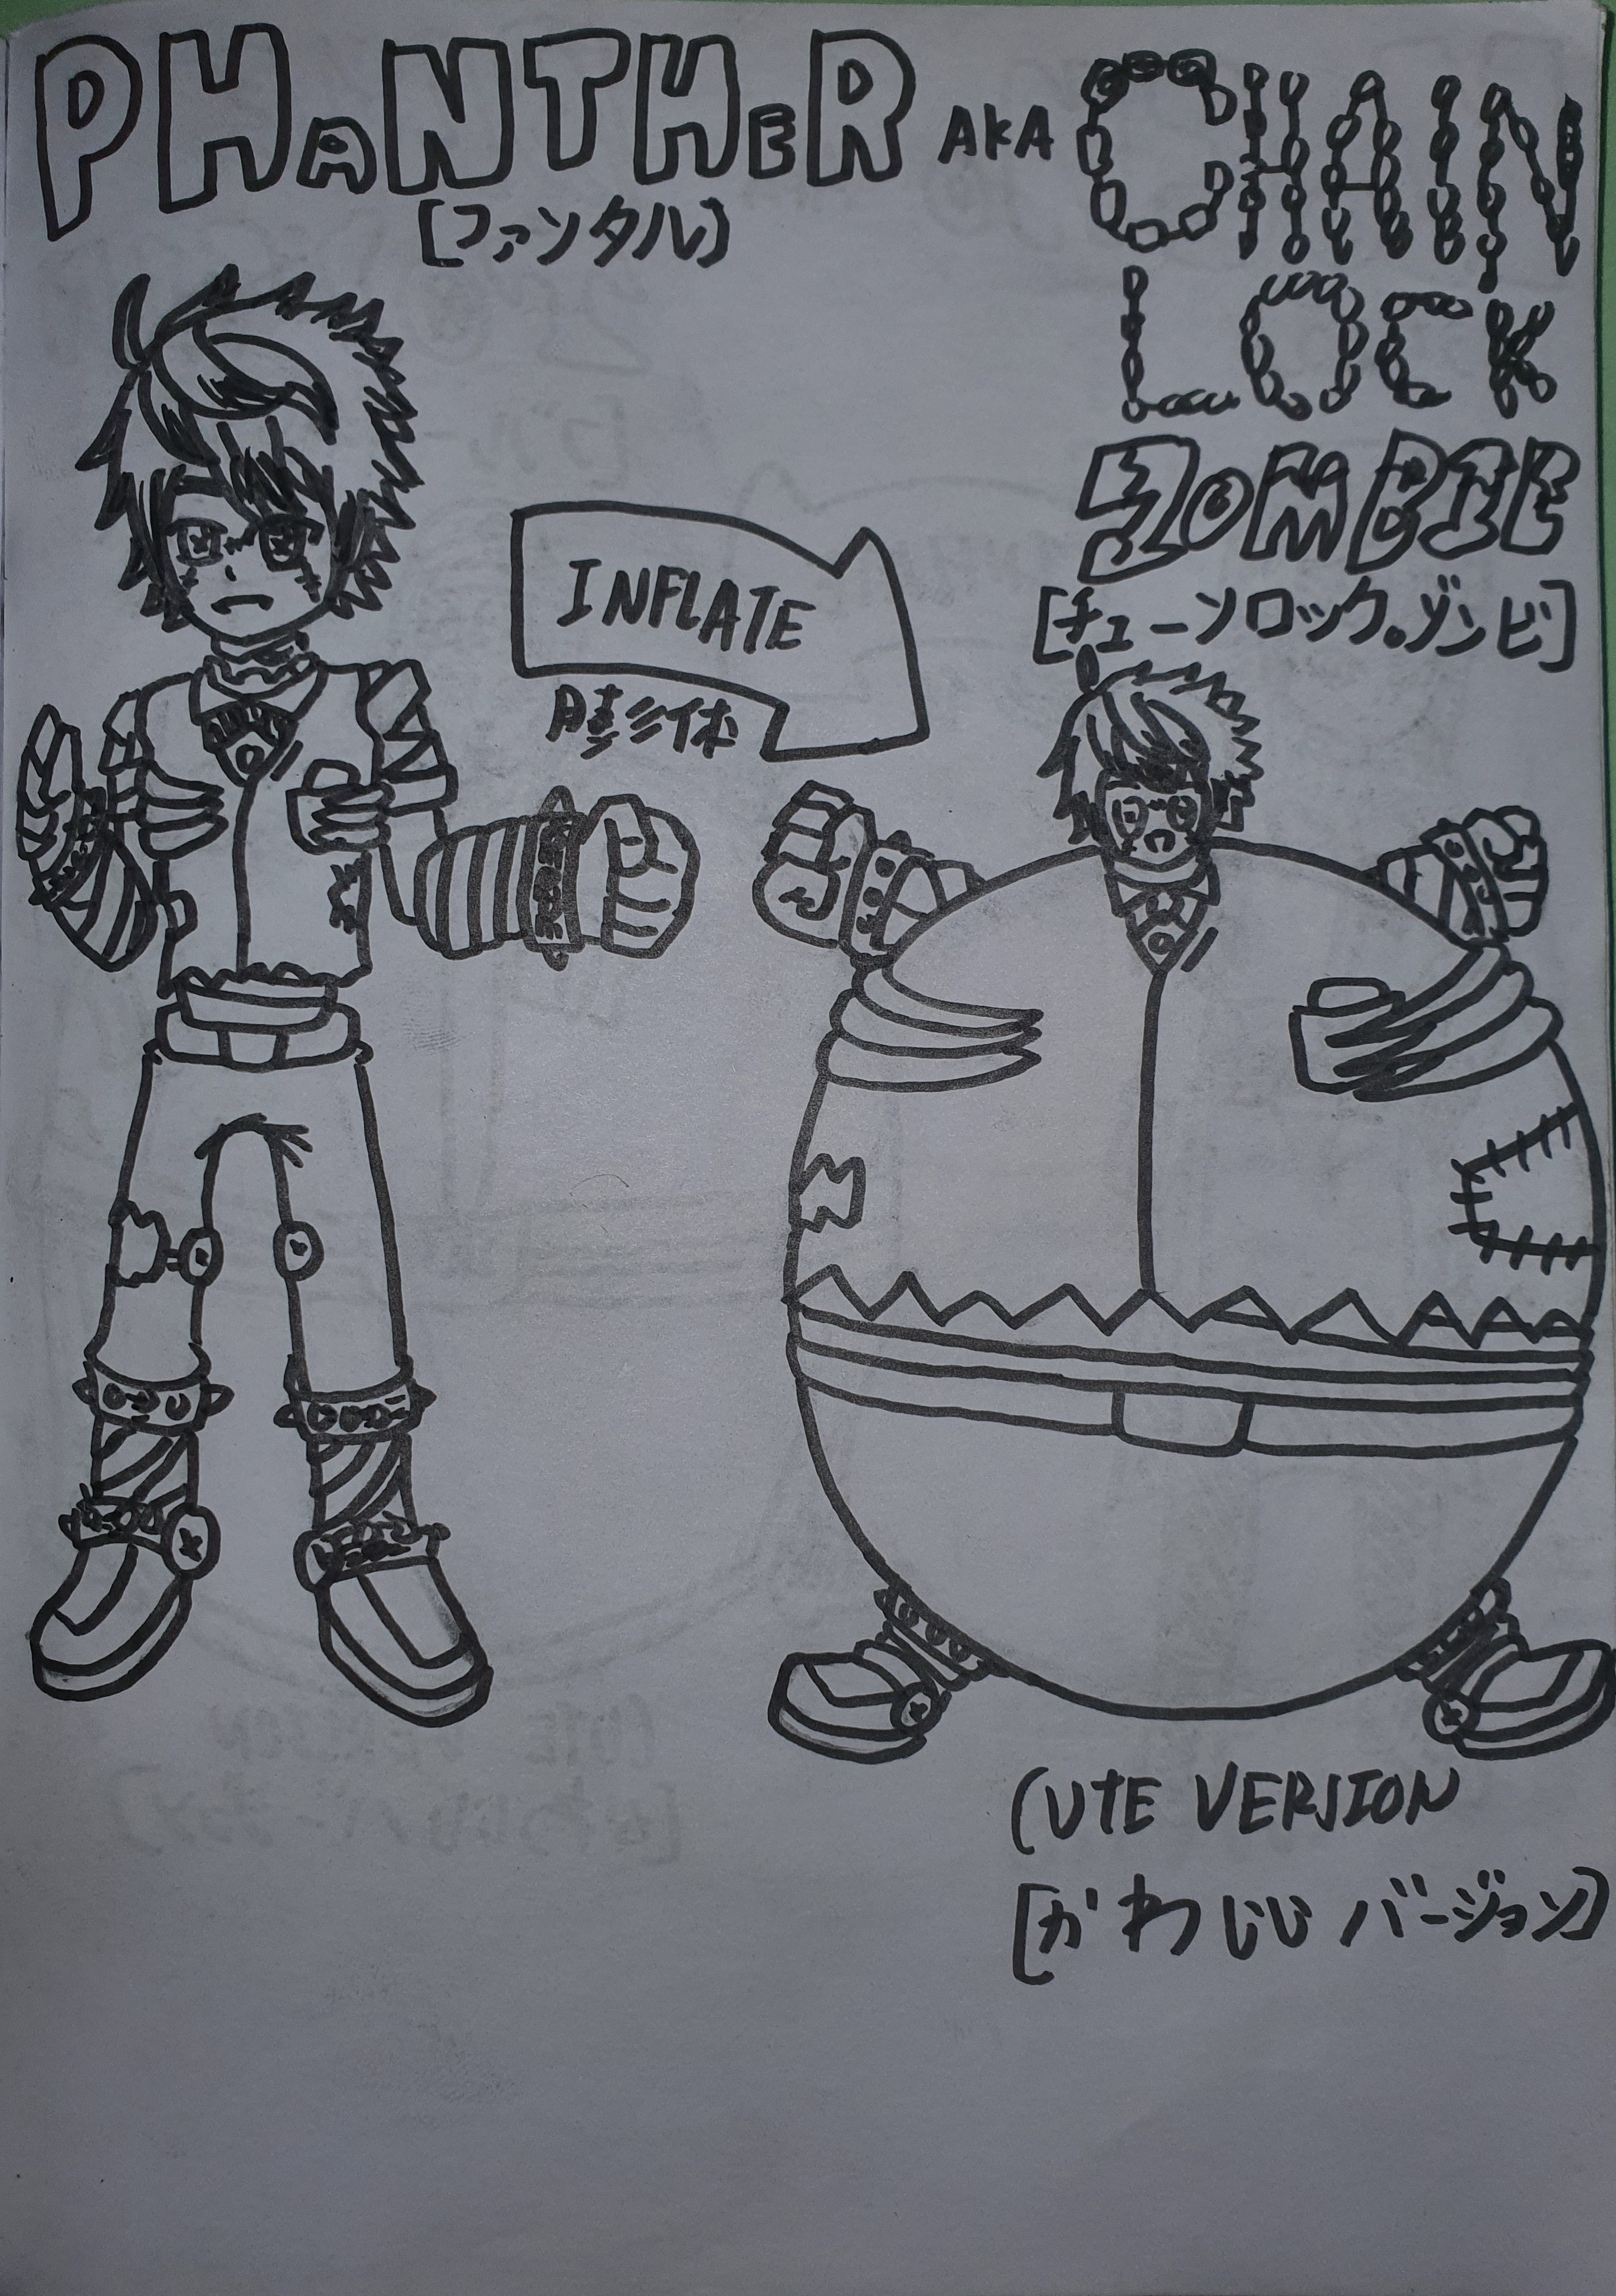 PHANTHER AKA CHAIN
[ファンタル]
LOCK
ZOMBIE
[チェーンロック。ゾンビ]
INFLATE
膨体
CUTE VERSION
[かわいい バージョン]